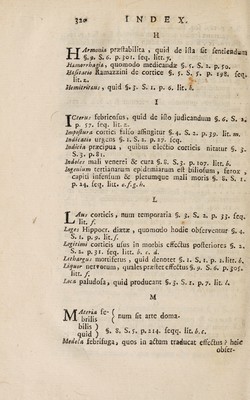 320 INDEX.
H
HArmonia præstabilita, quid de ista sit sentiendum
§. 9. S. 6. p. 301. seq. lit. y.
Hæmorrhagia, quomodo medicandæ §. 1. S. 2. p. 50.
Hæsitatio Ramazzini de cortice §. 5. S. 5. p. 198. seq.
lit. z.
Hemicritæus, quid §. 3. S. 1. p. 6. lit. b.
I
ICterus febriensus, quid de isto judicandum §. 6. S. 2.
p. 57. seq. lit. z.
Impostura cortici falso affingitur §. 4. S. 2. p. 39. lit. m.
Indicatio urgens §. 1. S. 2. p. 27. seq.
Indicia præcipua, quibus electio corticis nititur §. 3.
S. 3. p. 81.
Indoles mali veneri & cura §. 8. S. 3. p. 107. lit. b.
Ingenium tertianarum epidemiarum est biliosum, ferox,
capiti infensum & plerumque mali moris §. 8. S. 1.
p. 24. seq. litt. e. f. g. h.
L
LAus corticis, num temporaria §. 3. S. 2. p. 35. seq.
lit. f.
Leges Hippocr. diætæ, quomodo hodie observentur §. 4.
S. 1. p. 9. lit. f.
Legitimi corticis usus in morbis effectus posteriores §. 2.
S. 2. p. 31. seq. litt. b. c. d.
Lethargus mortiferus, quid denotet §. 1. S. 1. p. 2. litt. b.
Liquor nervorum, quales præstet effectus §. 9. S. 6. p. 305.
litt. f.
Loca paludosa, quid producant §. 3. S. 1. p. 7. lit. b.
M
MAteria fe-
brilis { num sit arte doma-
bilis }
quid } §. 8. S. 5. p. 214. seqq. lit. b. c.
Medela febrifuga, quos in actum traducat effectus? heic
obser-